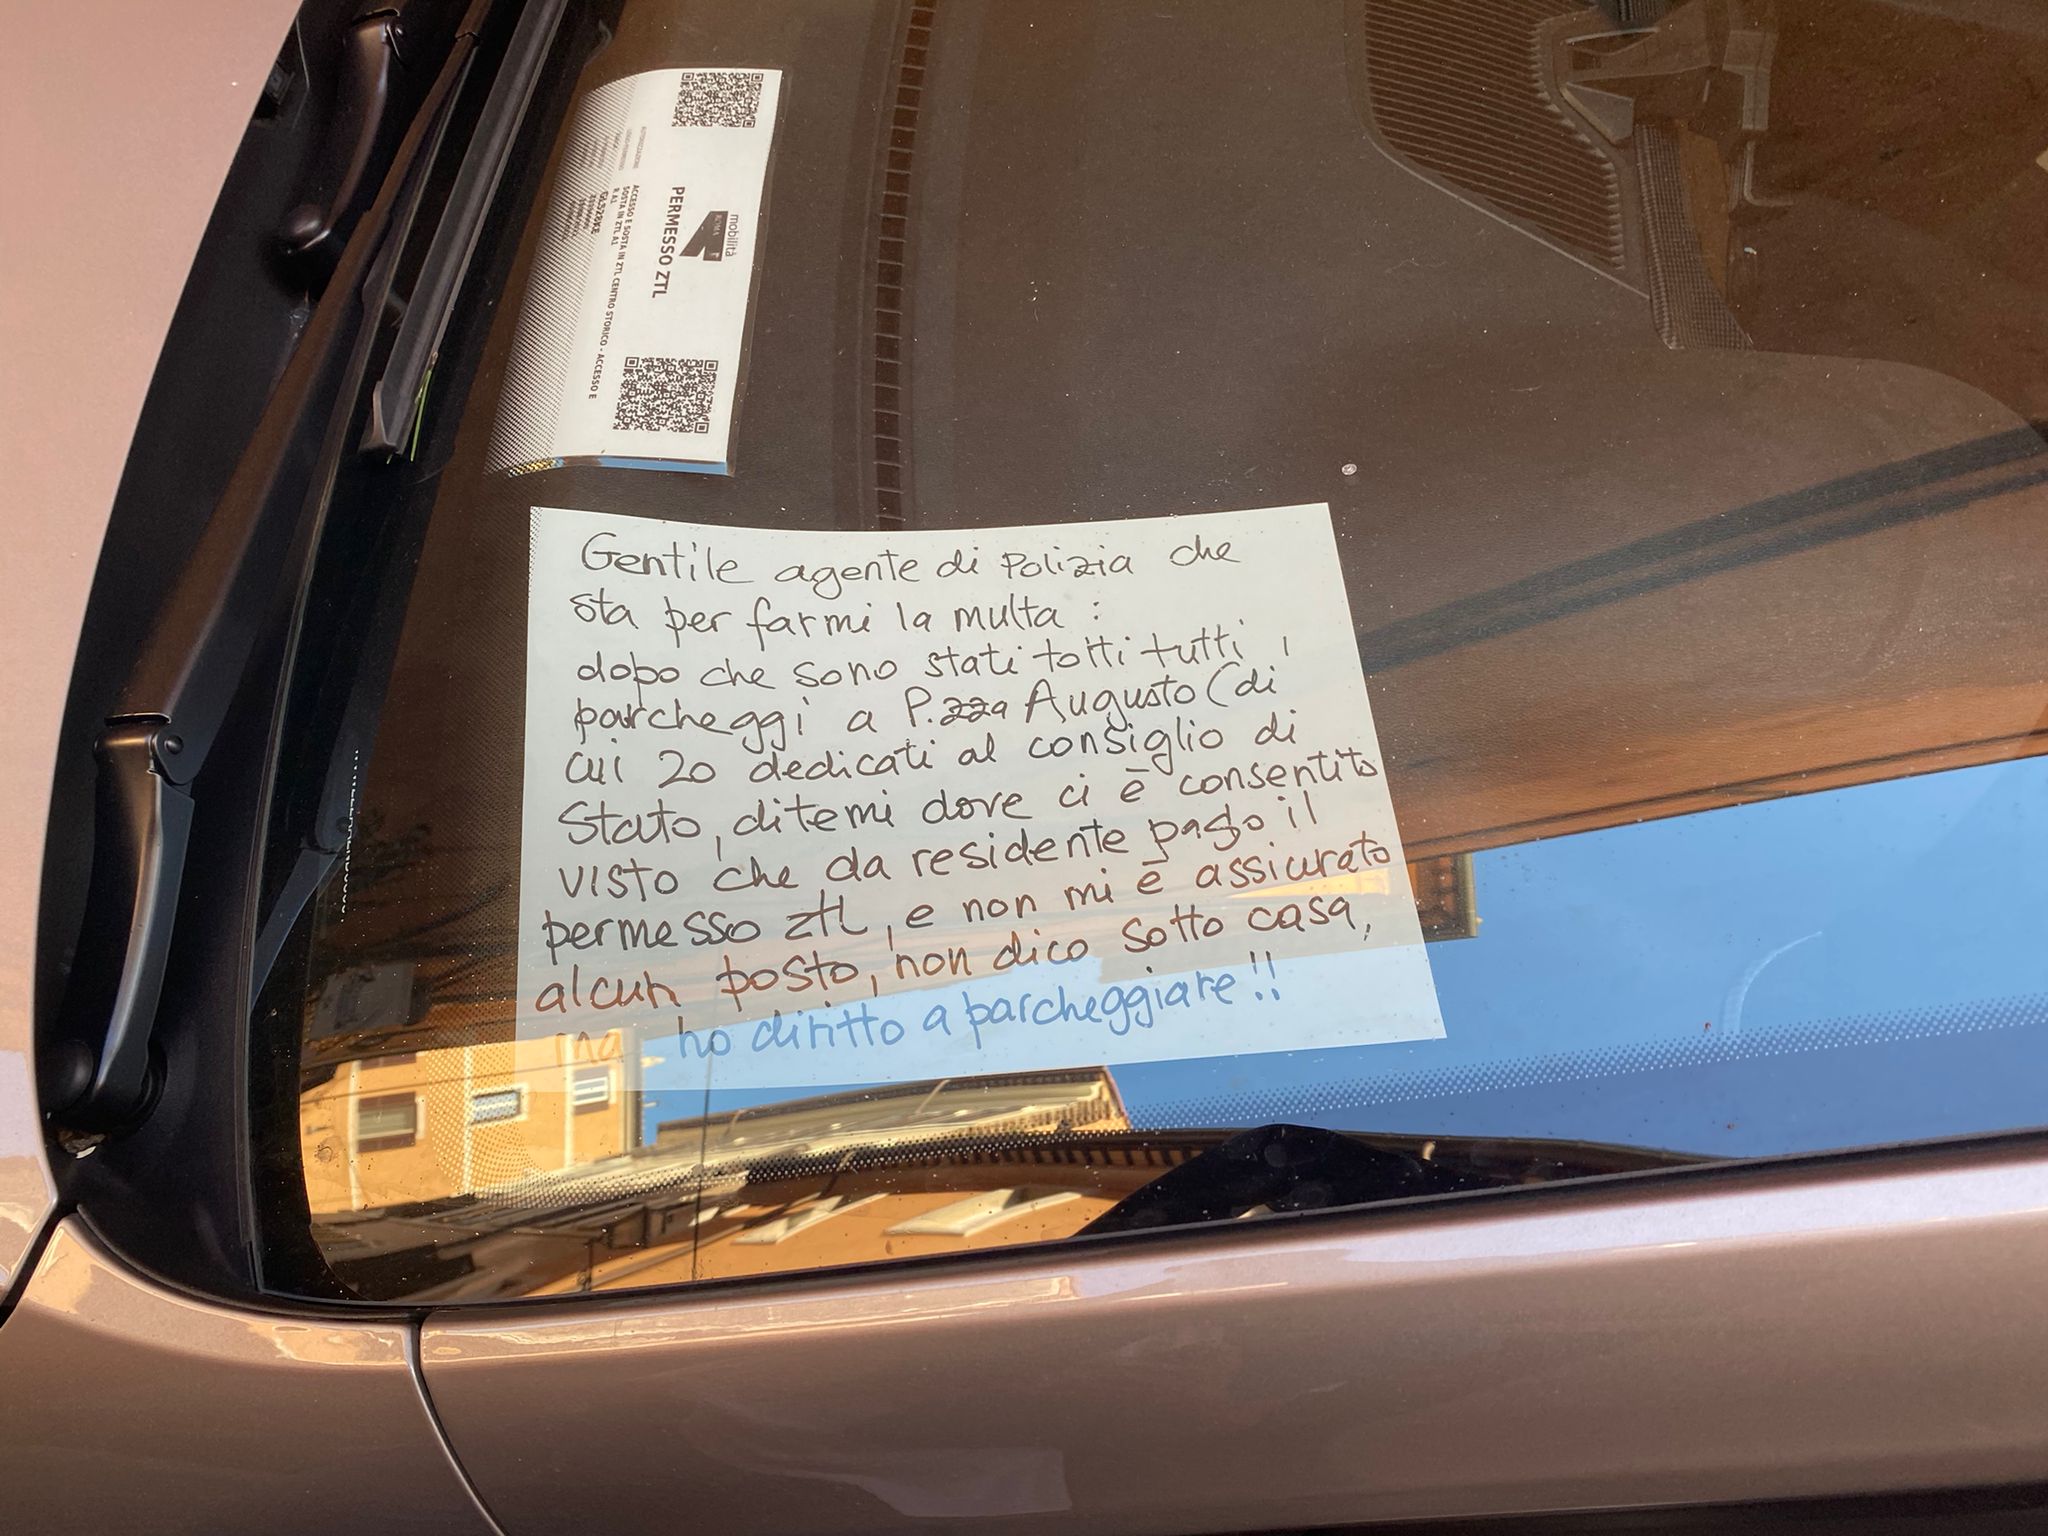 mobilità
ROMA
PERMESSO ZTL
ACCESSO E SOSTA IN ZTL CENTRO STORICO - ACCESSO E
SOSTA IN ZTL A1
R A1
Gentile agente di Polizia che
sta per farmi la multa :
dopo che sono stati tolti tutti i
parcheggi a P.zza Augusto (di
cui 20 dedicati al consiglio di
Stato, ditemi dove ci è consentito
visto che da residente pago il
permesso ztl, e non mi è assicurato
alcun posto, non dico sotto casa,
ma ho diritto a parcheggiare!!